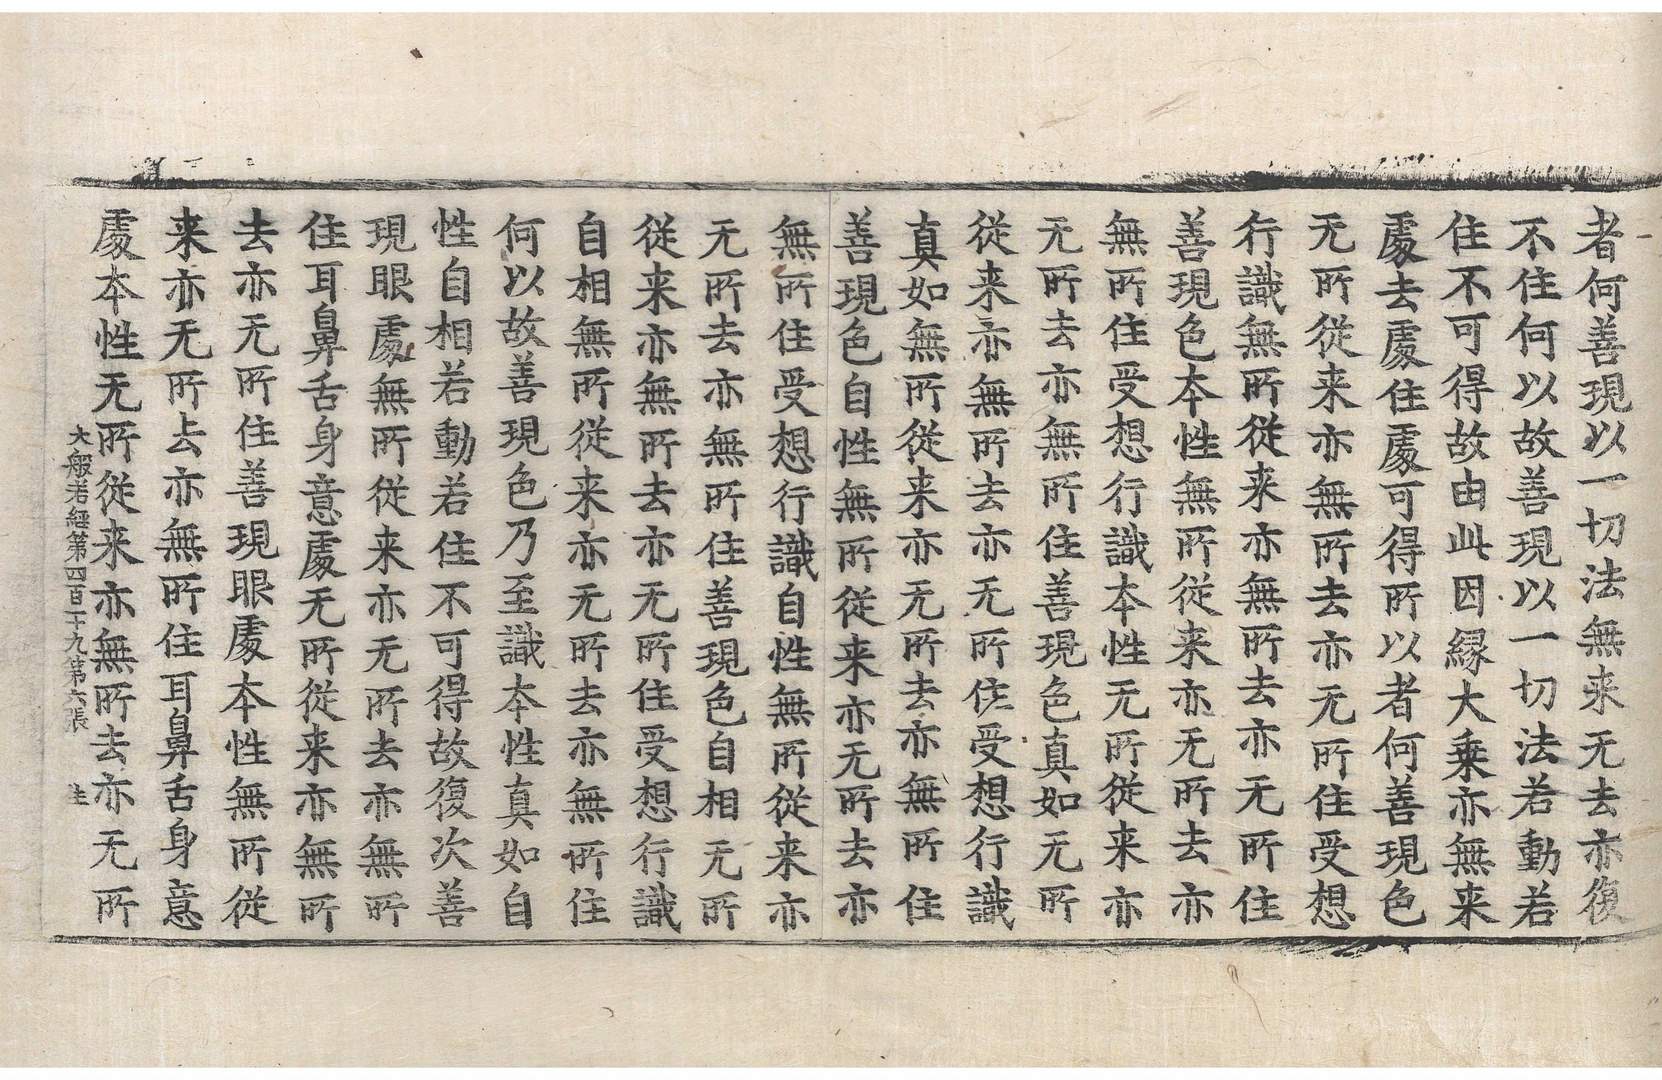 者何善現以一切法無来无去亦復
不住何以故善現以一切法若動若
住不可得故由此因縁大乗亦無来
處去處住處可得所以者何善現色
无所從来亦無所去亦无所住受想
行識無所從来亦無所去亦无所住
善現色本性無所從来亦无所去亦
無所住受想行識本性无所從来亦
无所去亦無所住善現色真如无所
從来亦無所去亦无所住受想行識
真如無所從来亦无所去亦無所住
善現色自性無所從来亦无所去亦
無所住受想行識自性無所從来亦
无所去亦無所住善現色自相无所
從来亦無所去亦无所住受想行識
自相無所從来亦无所去亦無所住
何以故善現色乃至識本性真如自
性自相若動若住不可得故復次善
現眼處無所從来亦无所去亦無所
住耳鼻舌身意處无所從来亦無所
去亦无所住善現眼處本性無所從
来亦无所去亦無所住耳鼻舌身意
處本性无所從来亦無所去亦无所
大般若經第四百十九第六張